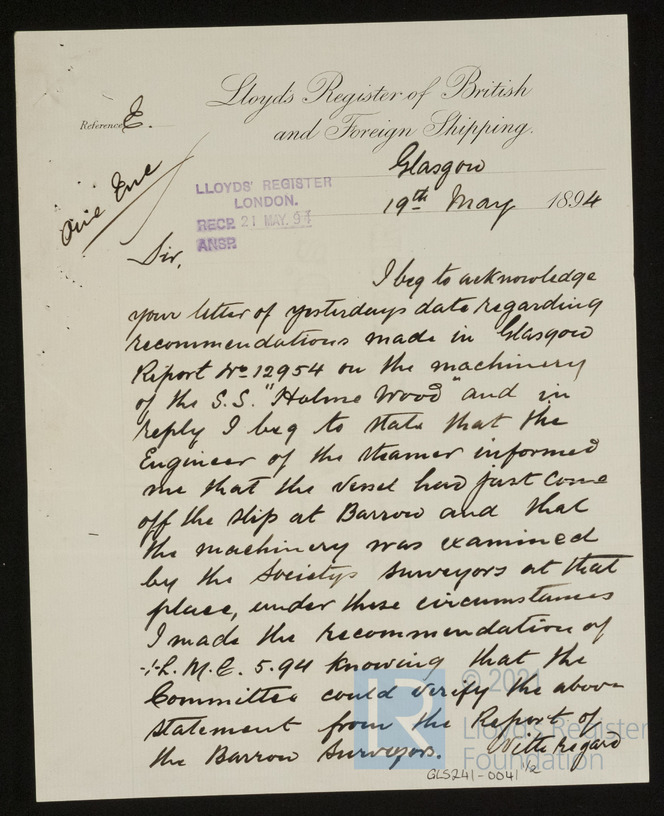 Lloyds Register of British
and Foreign Shipping.
Reference E.
One Enc
Glasgow
19th May 1894
LLOYDS' REGISTER
LONDON.
RECD. 21 MAY. 94
ANSD.
Sir,
I beg to acknowledge
your letter of yesterdays date regarding
recommendations made in Glasgow
Report No 12954 on the machinery
of the S.S. "Holme Wood" and in
reply I beg to state that the
Engineer of the steamer informed
me that the vessel had just come
off the slip at Barrow and that
the machinery was examined
by the Societys surveyors at that
place, under these circumstances
I made the recommendation of
L.M.C. 5.94 knowing that the
Committee could verify the above
statement from the Report of
the Barrow Surveyors. With regard
GLS241-0041 1/2
LR
© 2021
Lloyds Register
Foundation